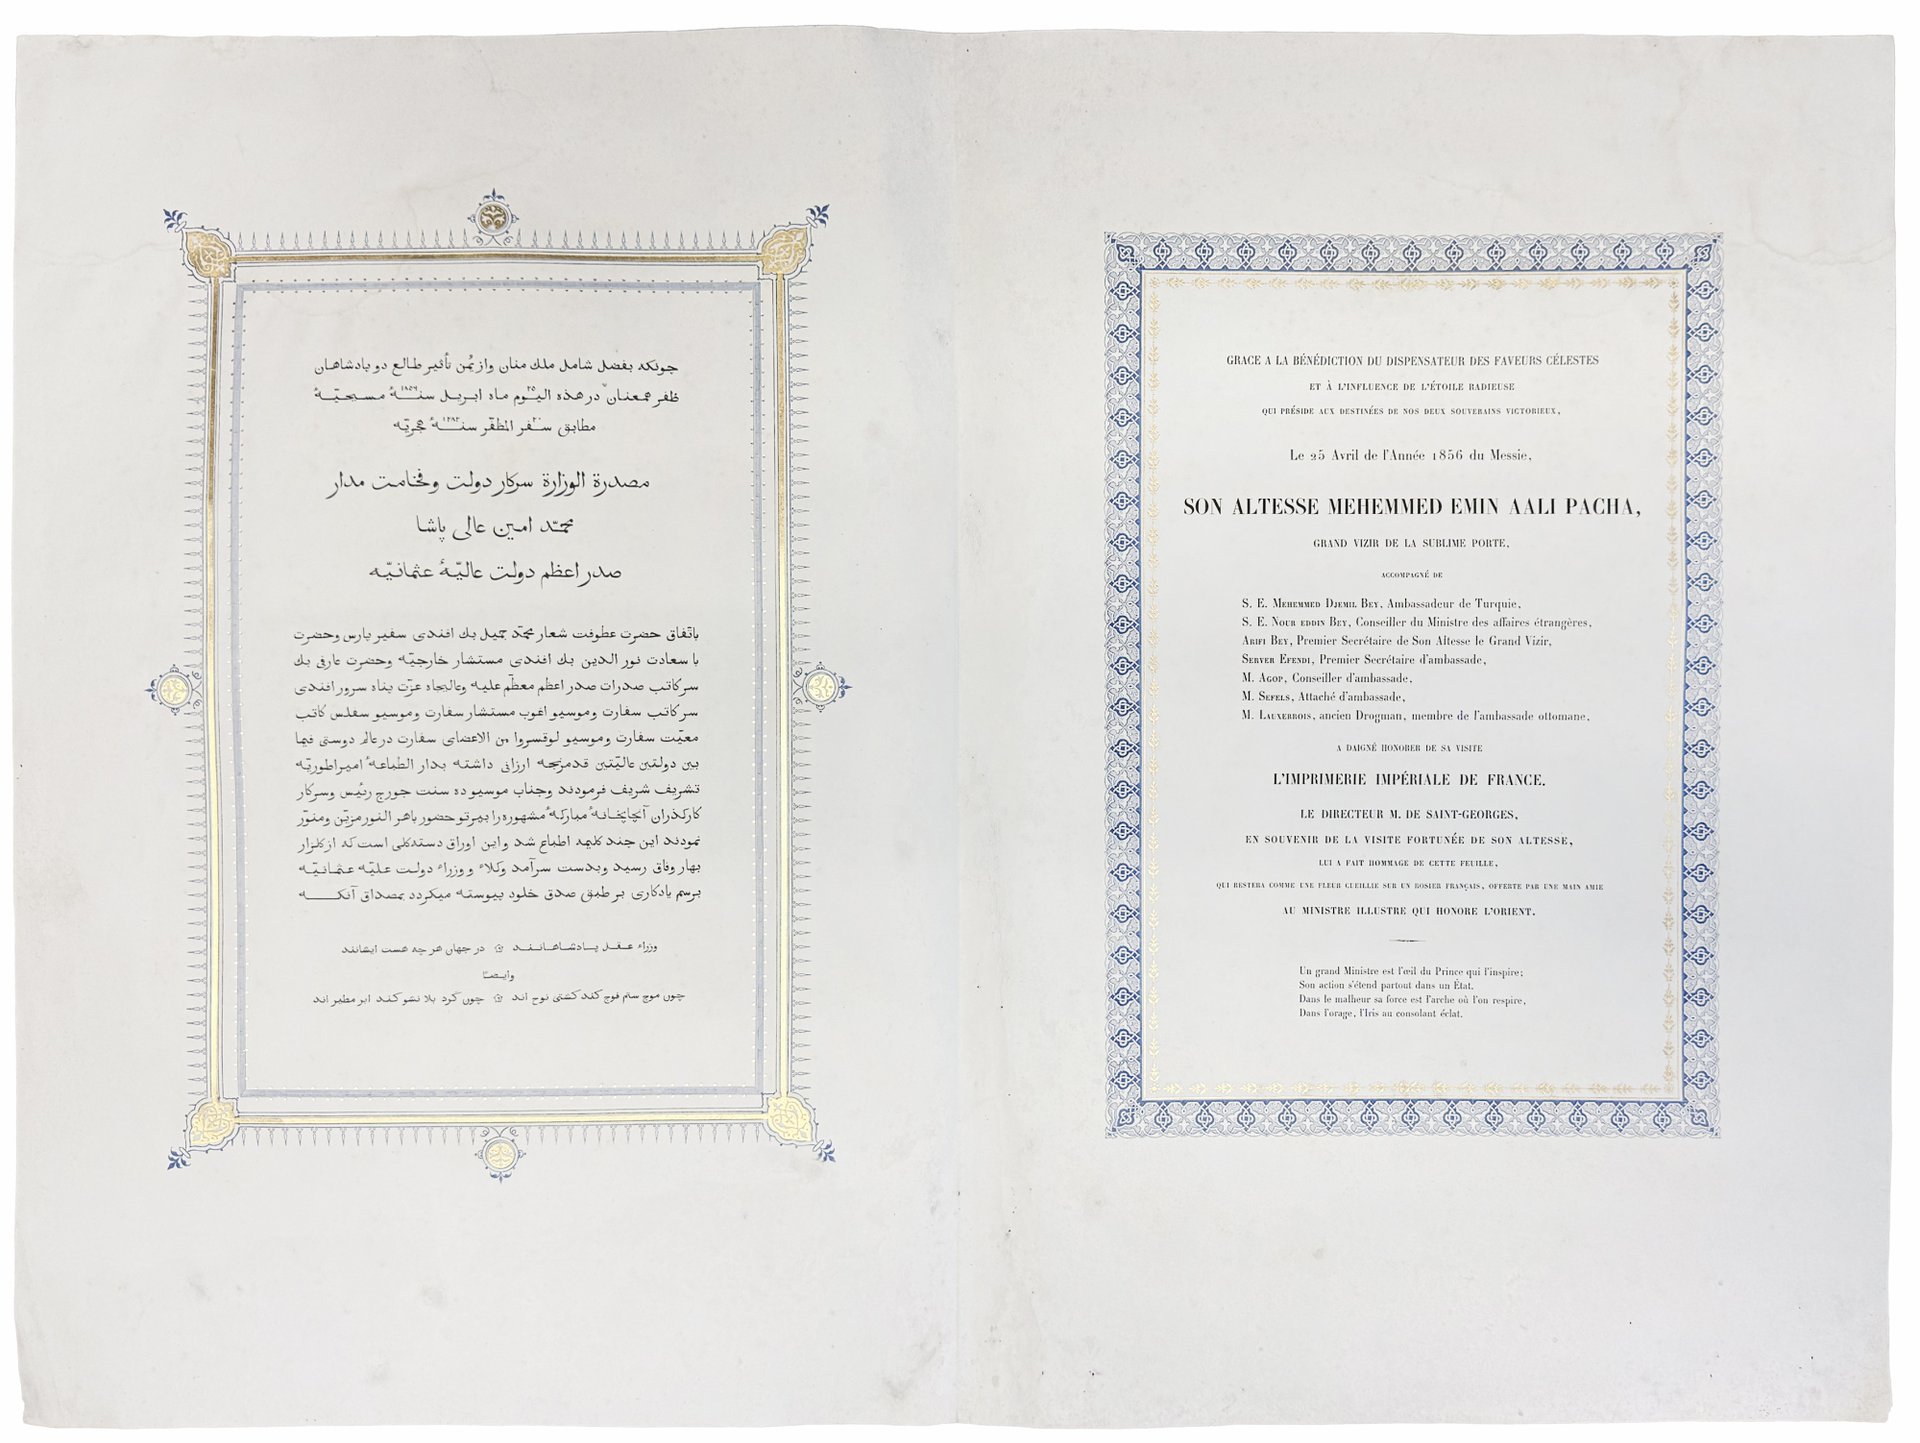 جونكه بفضل شامل ملك منان وازيُمن تأثير طالع دو پادشاهان
ظفر همعنان در هذه اليوم ٢٥ ماه ابريل سنهٔ ١٨٥٦ مسيحيّهٔ
مطابق سفر المظفّر سنهٔ هجريّه
مصدرة الوزارة سركار دولت وفخامت مدار
محمّد امين عالى پاشا
صدر اعظم دولت عاليّهٔ عثمانيّه
باتّفاق حضرت عطوفت شعار محمّد جميل بك افندى سفير پارس وحضرت
با سعادت نور الدين بك افندى مستشار خارجيّه وحضرت عارفى بك
سركاتب صدرات صدر اعظم معظّم عليه وعاليجاه عزّت پناه سرور افندى
سركاتب سفارت وموسيو اغوب مستشار سفارت وموسيو سفلس كاتب
معيّت سفارت وموسيو لوقسروا من الاعضاى سفارت در عالم دوستى فيما
بين دولتين عاليّتين قدمرنجه ارزانى داشته بدار الطباعهٔ امپراطوريّه
تشريف شريف فرمودند وجناب موسيو ده سنت جورج رئيس وسركار
كاركذران آنچاپخانهٔ مباركهٔ مشهوره را بپرتو حضور باهر النور مزيّن ومنوّر
نمودند اين چند كليمه اطباع شد واين اوراق دسته كلى است كه از كلزار
بهار وفاق رسيد وبدست سرآمد وكلاء و وزراء دولت عليّه عثمانيّه
برسم يادكارى بر طبق صدق خلود پيوسته ميكردد بمصداق آنكه
وزراء عقل پادشاهانند ۞ در جهان هر چه هست ايشانند
وايضًا
چون موج ستم فوج كند كشتى نوح اند ۞ چون گرد بلا نشو كند ابر مطير اند
GRACE A LA BÉNÉDICTION DU DISPENSATEUR DES FAVEURS CÉLESTES
ET À L'INFLUENCE DE L'ÉTOILE RADIEUSE
QUI PRÉSIDE AUX DESTINÉES DE NOS DEUX SOUVERAINS VICTORIEUX,
Le 25 Avril de l'Année 1856 du Messie,
SON ALTESSE MEHEMMED EMIN AALI PACHA,
GRAND VIZIR DE LA SUBLIME PORTE,
ACCOMPAGNÉ DE
S. E. MEHEMMED DJEMIL BEY, Ambassadeur de Turquie,
S. E. NOUR EDDIN BEY, Conseiller du Ministre des affaires étrangères,
ARIFI BEY, Premier Secrétaire de Son Altesse le Grand Vizir,
SERVER EFENDI, Premier Secrétaire d'ambassade,
M. AGOP, Conseiller d'ambassade,
M. SEFELS, Attaché d'ambassade,
M. LAUXERROIS, ancien Drogman, membre de l'ambassade ottomane,
A DAIGNÉ HONORER DE SA VISITE
L'IMPRIMERIE IMPÉRIALE DE FRANCE.
LE DIRECTEUR M. DE SAINT-GEORGES,
EN SOUVENIR DE LA VISITE FORTUNÉE DE SON ALTESSE,
LUI A FAIT HOMMAGE DE CETTE FEUILLE,
QUI RESTERA COMME UNE FLEUR CUEILLIE SUR UN ROSIER FRANÇAIS, OFFERTE PAR UNE MAIN AMIE
AU MINISTRE ILLUSTRE QUI HONORE L'ORIENT.
Un grand Ministre est l'œil du Prince qui l'inspire;
Son action s'étend partout dans un État.
Dans le malheur sa force est l'arche où l'on respire,
Dans l'orage, l'Iris au consolant éclat.